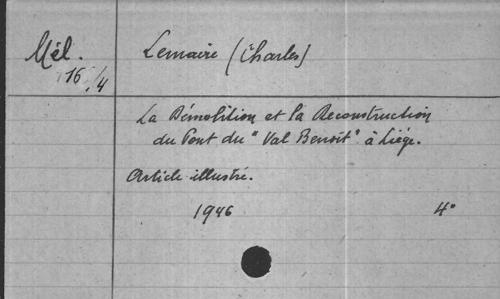 Mél.
16/4
Lemaire (Charles)
La Démolition et la Reconstruction
du Pont du "Val Benoit" à Liége.
Article illustré.
1946 4°